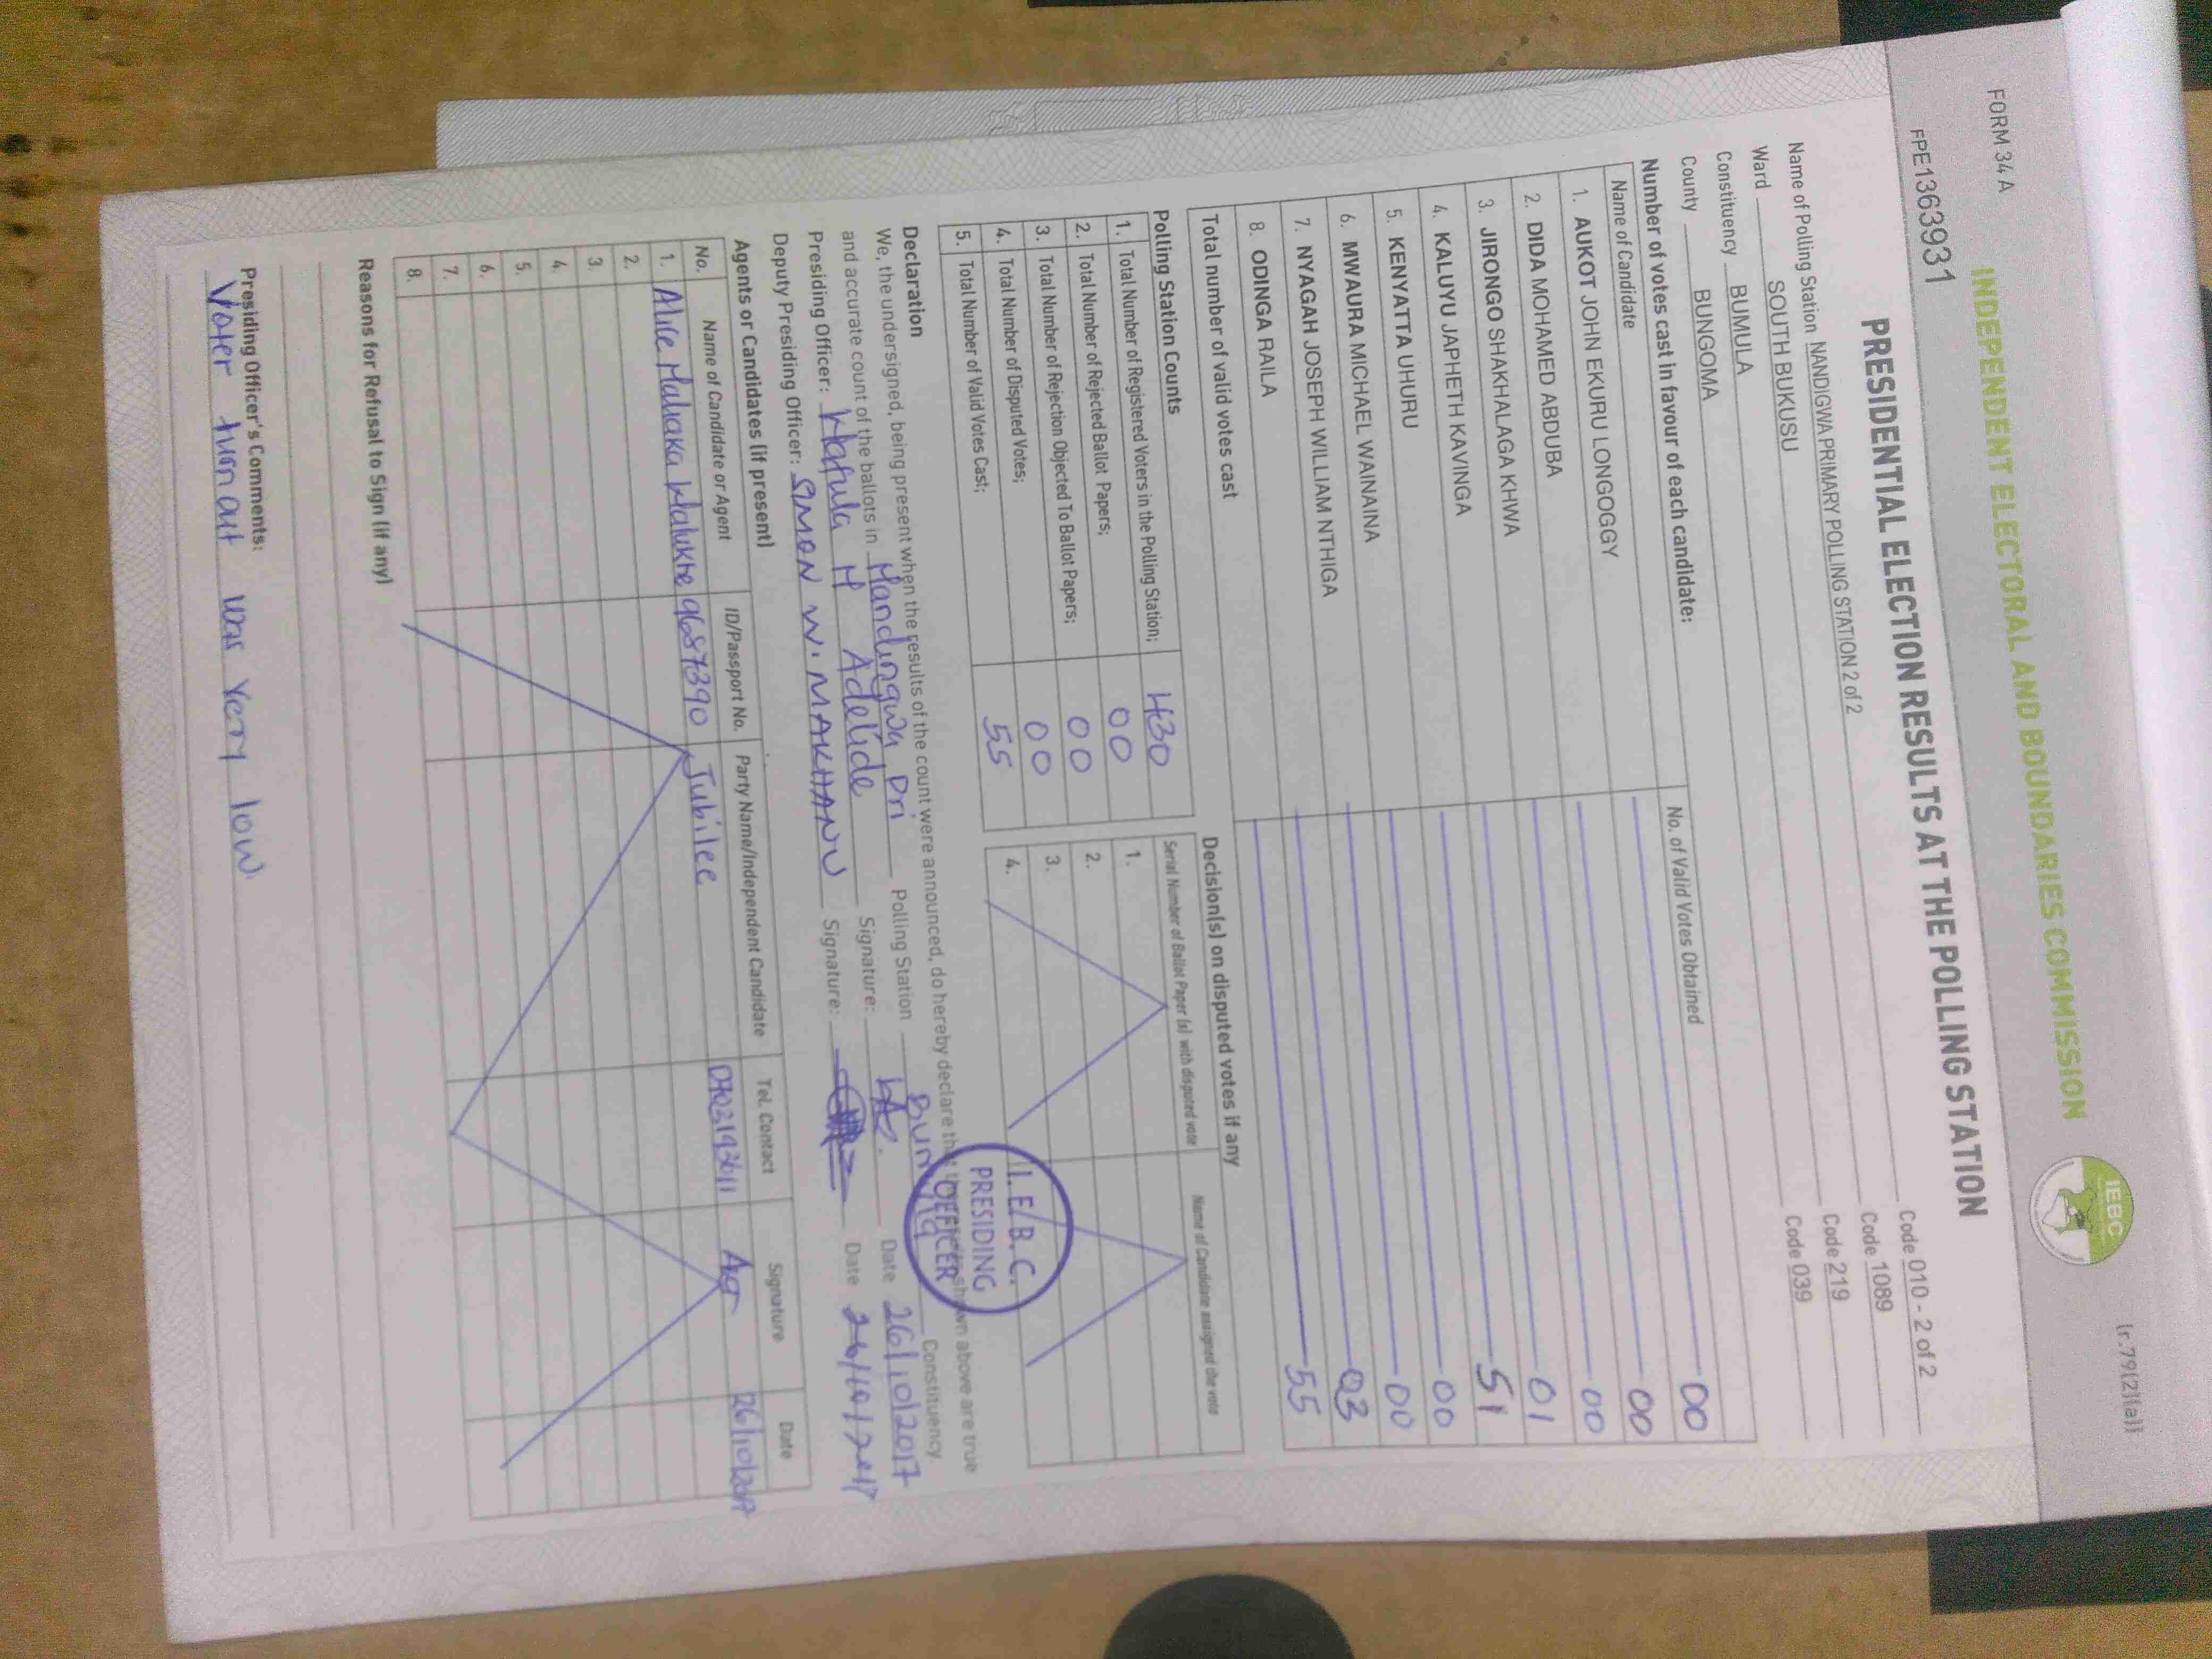 FORM 34 A
(r.79(2)(a))
INDEPENDENT ELECTORAL AND BOUNDARIES COMMISSION
IEBC
FPE1363931
PRESIDENTIAL ELECTION RESULTS AT THE POLLING STATION
Name of Polling Station NANDIGWA PRIMARY POLLING STATION 2 of 2 Code 010 - 2 of 2
Ward SOUTH BUKUSU Code 1089
Constituency BUMULA Code 219
County BUNGOMA Code 039
Number of votes cast in favour of each candidate:
Name of Candidate No. of Valid Votes Obtained
1. AUKOT JOHN EKURU LONGOGGY 00
2. DIDA MOHAMED ABDUBA 00
3. JIRONGO SHAKHALAGA KHWA 00
4. KALUYU JAPHETH KAVINGA 01
5. KENYATTA UHURU 51
6. MWAURA MICHAEL WAINAINA 00
7. NYAGAH JOSEPH WILLIAM NTHIGA 00
8. ODINGA RAILA 03
Total number of valid votes cast 55
Polling Station Counts
1. Total Number of Registered Voters in the Polling Station; 430
2. Total Number of Rejected Ballot Papers; 00
3. Total Number of Rejection Objected To Ballot Papers; 00
4. Total Number of Disputed Votes; 00
5. Total Number of Valid Votes Cast; 55
Decision(s) on disputed votes if any
Serial Number of Ballot Paper (s) with disputed vote Name of Candidate assigned the vote
1.
2.
3.
4.
I.E.B.C.
PRESIDING
OFFICER
Declaration
We, the undersigned, being present when the results of the count were announced, do hereby declare that the results shown above are true
and accurate count of the ballots in Nandingwa Pri Polling Station Constituency
Presiding Officer: Wafula M Adelide Signature: Date 26/10/2017
Deputy Presiding Officer: SIMON W. MAKHANU Signature: Date 26/10/2017
Agents or Candidates (if present)
No. Name of Candidate or Agent ID/Passport No. Party Name/Independent Candidate Tel. Contact Signature Date
1. Alice 9687390 Jubilee 26/10/2017
2.
3.
4.
5.
6.
7.
8.
Reasons for Refusal to Sign (if any)
Presiding Officer's Comments:
Voter turn out was very low.